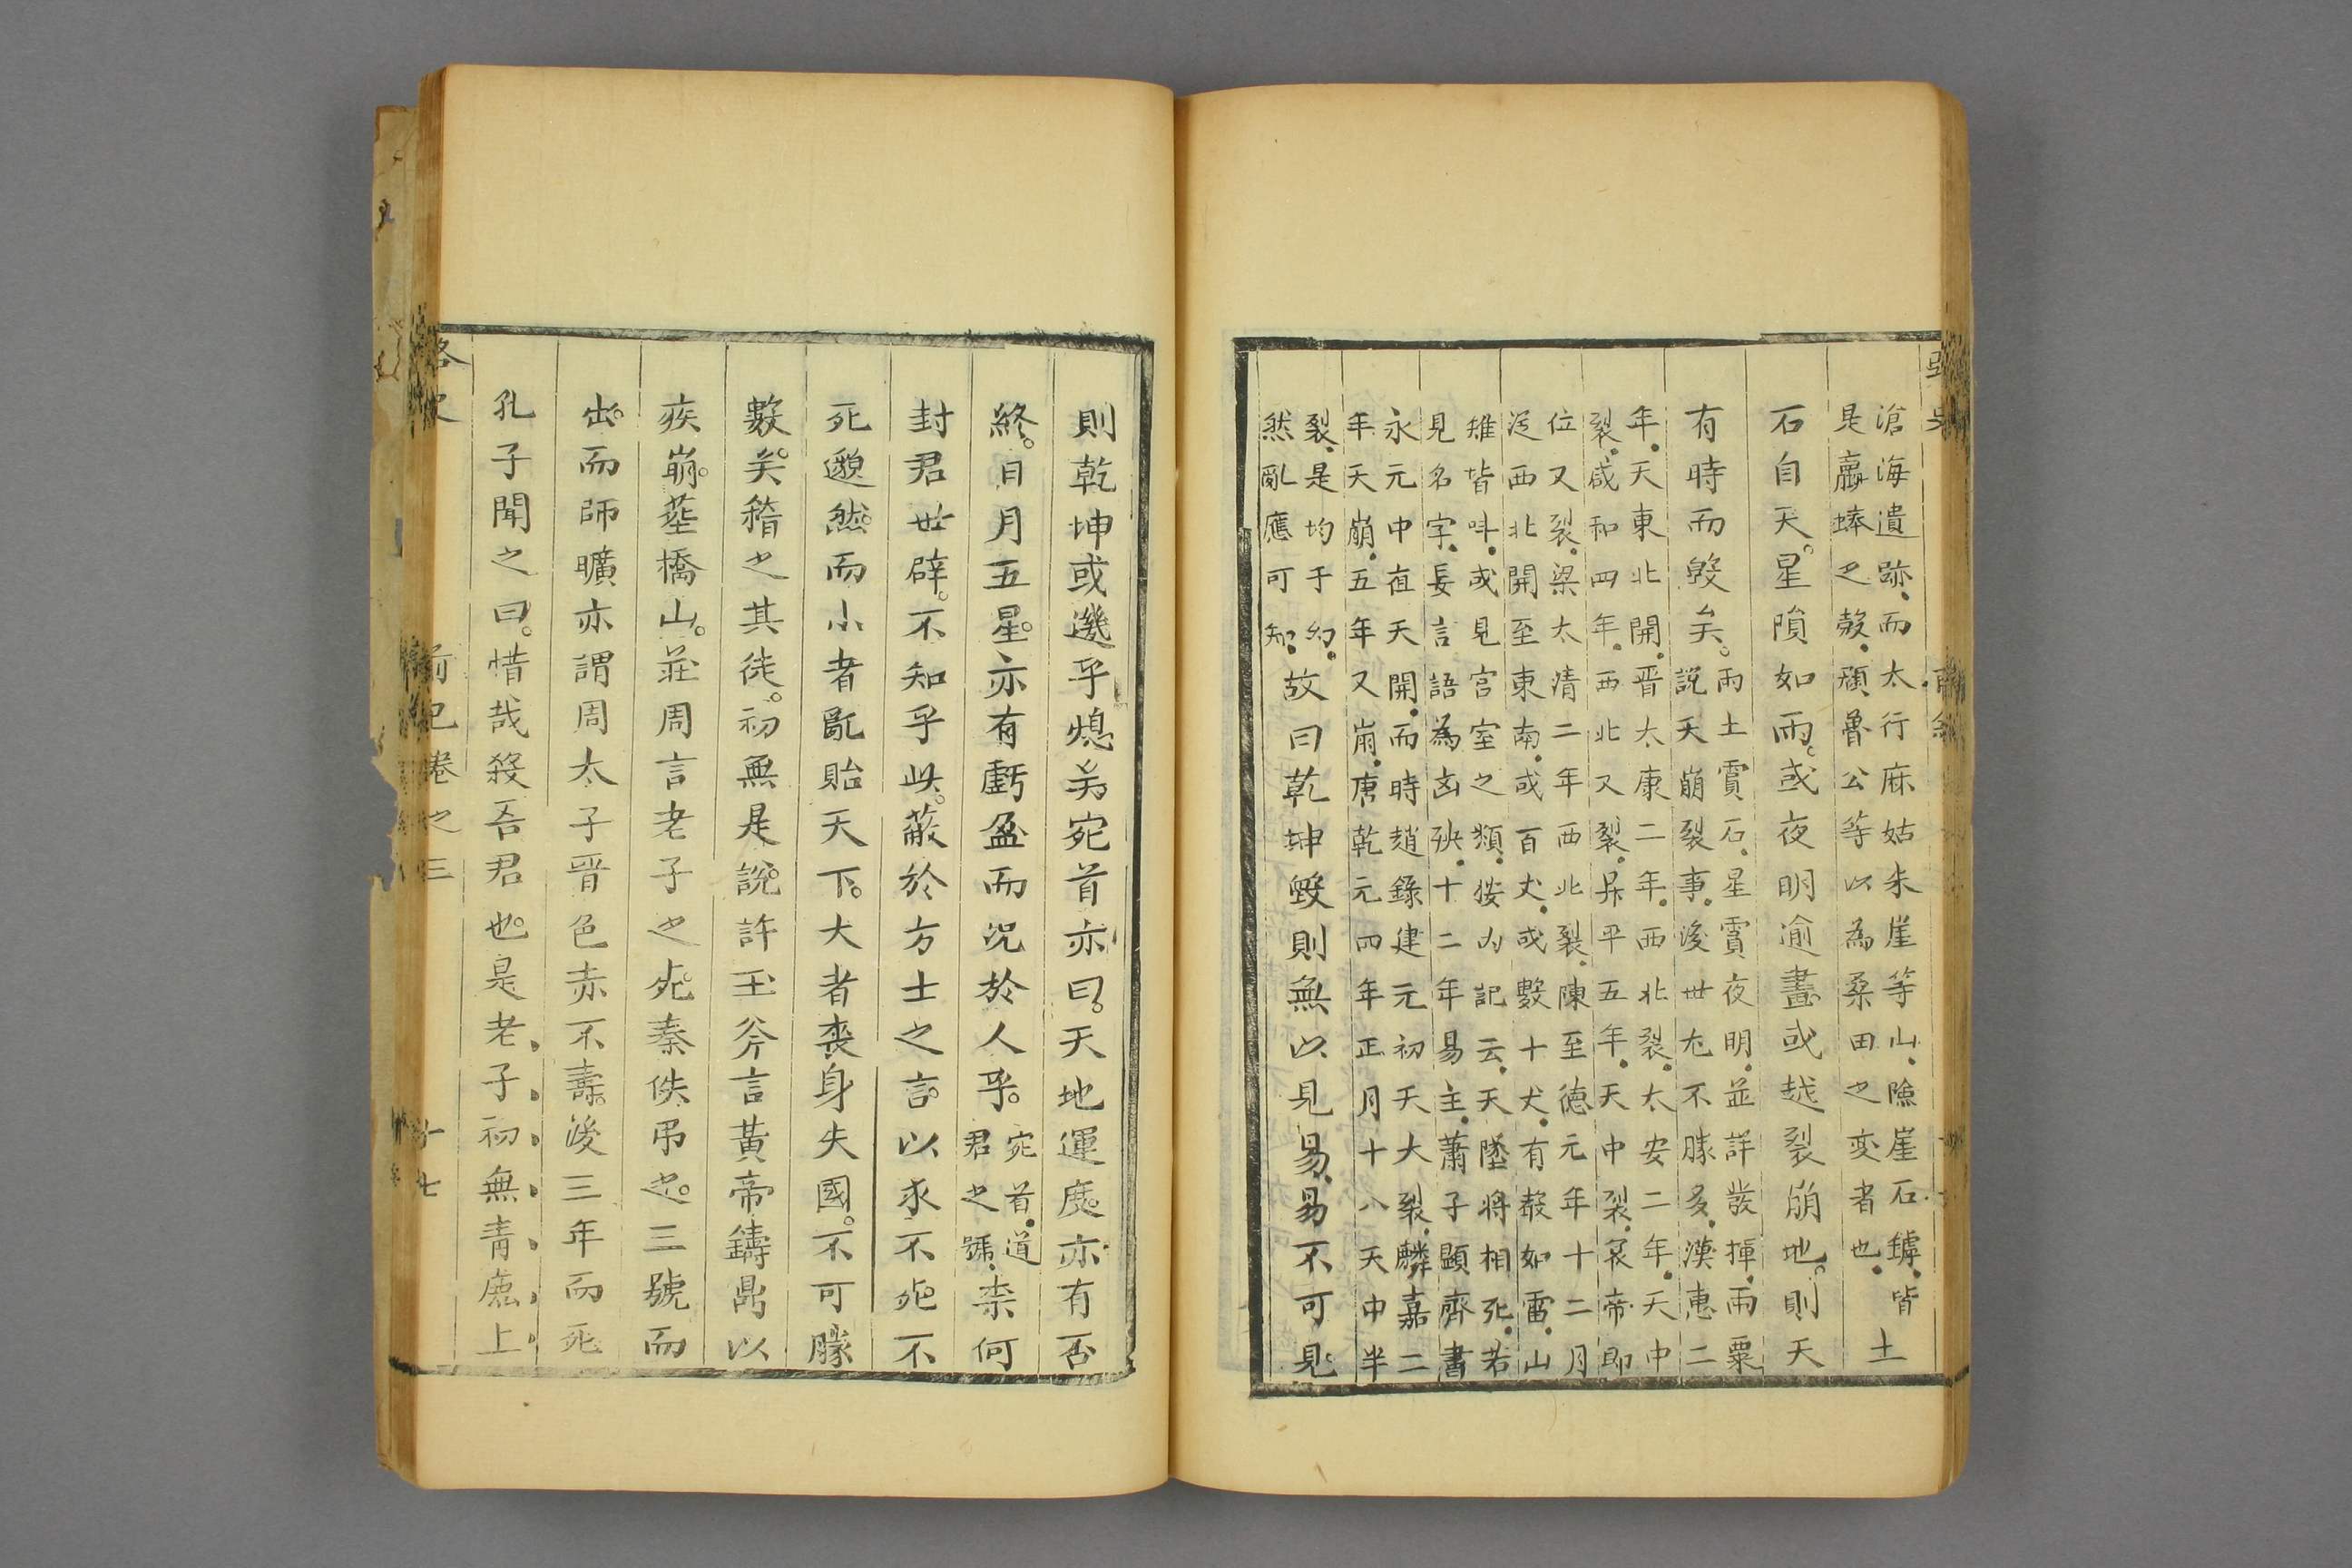 滄海遺跡而太行麻姑朱崖等山險崖石鏬皆
是蠃蜯之殼顔魯公等以為桒田之变者也土
石自天星隕如雨或夜明逾晝或越裂崩地則天
有時而毀矣
雨土賈石星賈夜明並詳發揮雨粟
說天崩裂事後世尤不勝多漢惠二
年天東北開晋太康二年西北裂太安二年天中
裂咸和四年西北又裂昇平五年天中裂哀帝即
位又裂梁太清二年西北裂陳至德元年十二月
從西北開至東南或百丈或數十丈有聲如雷山
雉皆呌或見宫室之類按内記云天墜將相死若
見名字長言語為凶殃十二年易主蕭子顯齊書
永元中夜天開而時趙錄建元初天大裂麟嘉二
年天崩五年又崩唐乾元四年正月十八天中半
裂是均于幻
然亂應可知
故曰乾坤毀則無以見易易不可見
則乾坤或㡬乎熄矣宛首亦曰天地運度亦有否
終日月五星亦有虧盈而况於人乎
宛首道
君之號
柰何
封君世辟不知乎此蔽於方士之言以求不死不
死邈然而小者亂貽天下大者喪身失國不可勝
數矣稽之其徒初無是說許玉斧言黃帝鑄鼎以
疾崩葬橋山莊周言老子之死秦佚弔之三號而
出而師曠亦謂周太子晋色赤不壽後三年而死
孔子聞之曰惜哉殺吾君也是老子初無青鹿上
路史
前紀卷之三
十七